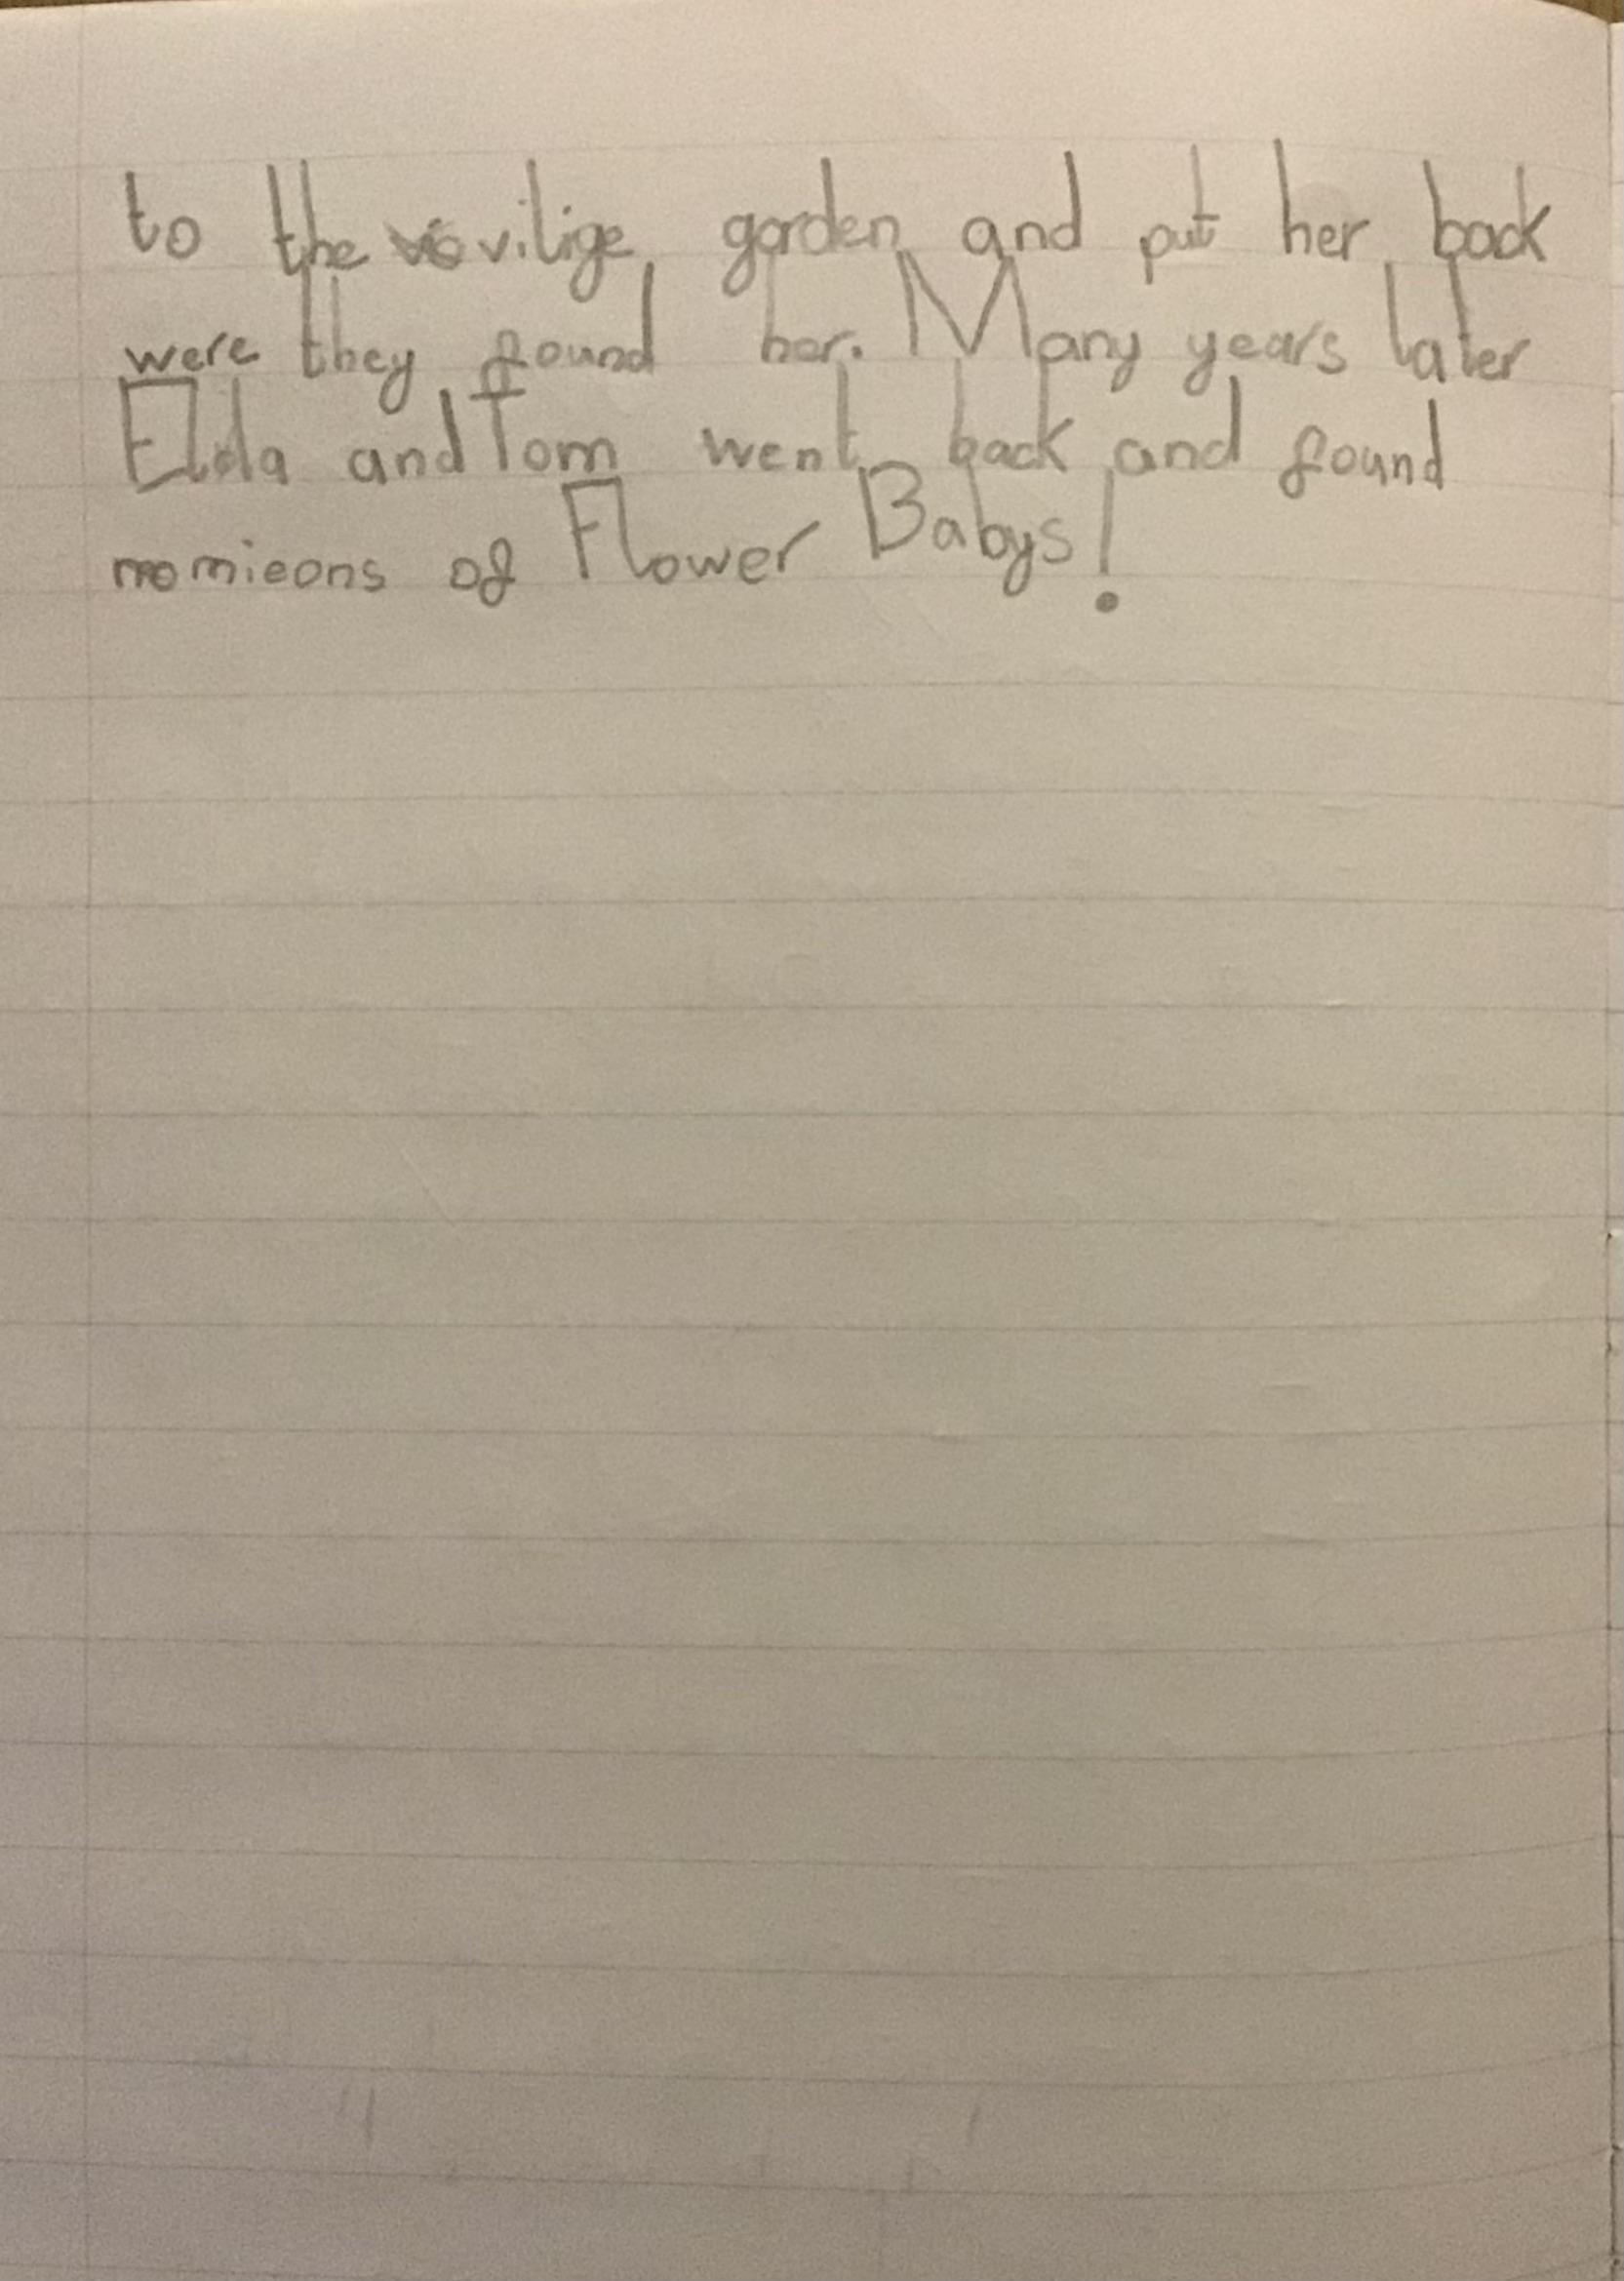 to the vilige garden and put her back
were they found her. Many years later
Elda and Tom went back and found
momieons of Flower Babys!